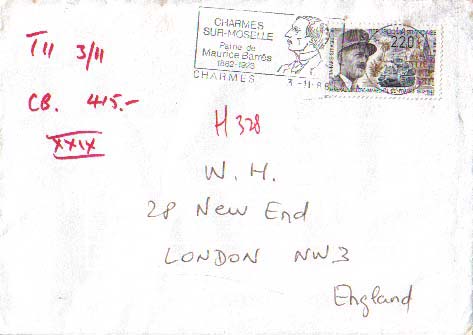 T11 3/11
CB. 415.-
XXIX
CHARMES
SUR-MOSELLE
Patrie de
Maurice Barrès
1862-1923
CHARMES
3-11-8
2,20
H 328
W. H.
28 New End
LONDON NW3
England